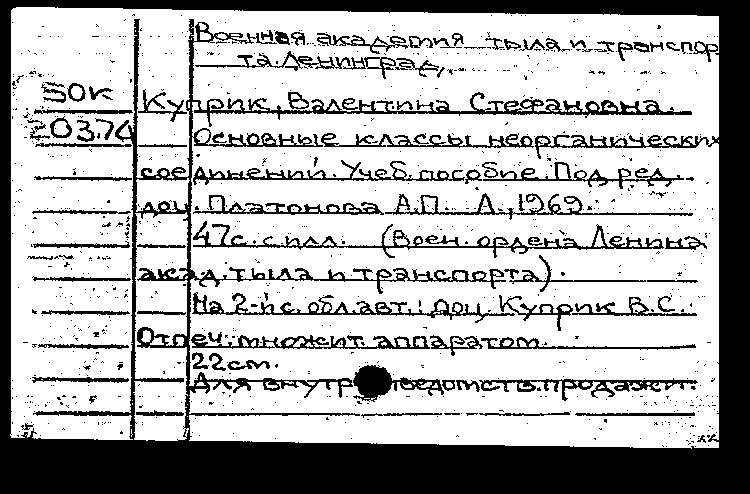 Военная академия тыла и транспор
та. Ленинград,
50к Куприк, Валентина Стефановна.
20374 Основные классы неорганических
соединений. Учеб. пособие. Под ред.
доц. Платонова А.П. Л., 1969.
47с. с илл. (Воен. ордена Ленина
акад. тыла и транспорта).
На 2-й с. обл. авт.: доц. Куприк В.С.
Отпеч. множит. аппаратом.
22см.
Для внутриведомств. продажи.